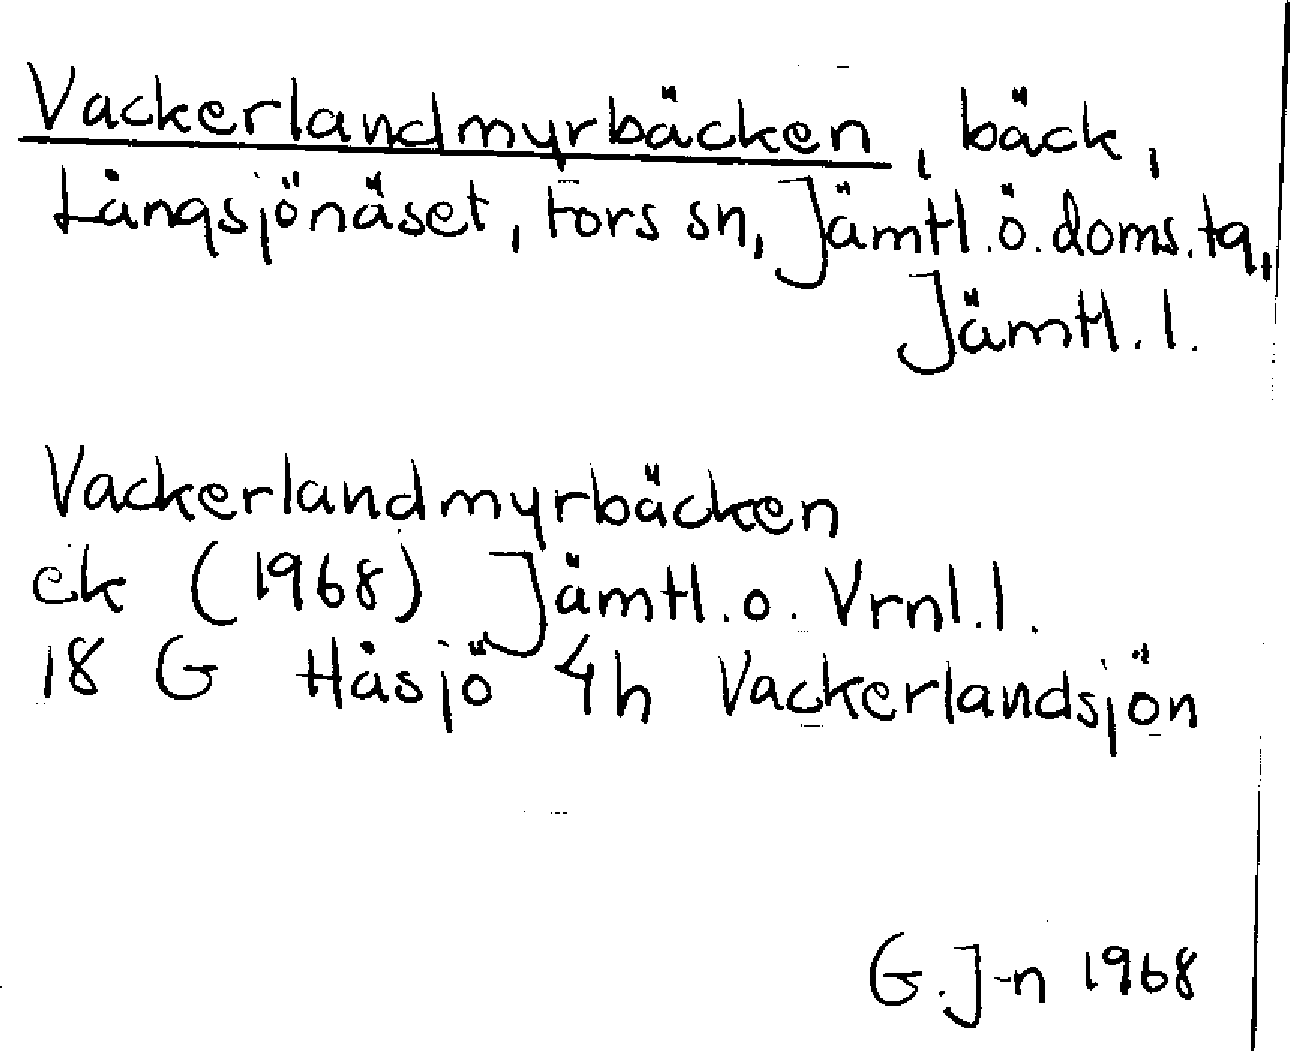 Vackerlandmyrbäcken, bäck,
Långsjönäset, Fors sn, Jämtl. ö. doms. tg,
Jämtl. l.
Vackerlandmyrbäcken
ek (1968) Jämtl. o. Vrnl. l.
18 G Håsjö 4h Vackerlandsjön
G. J-n 1968